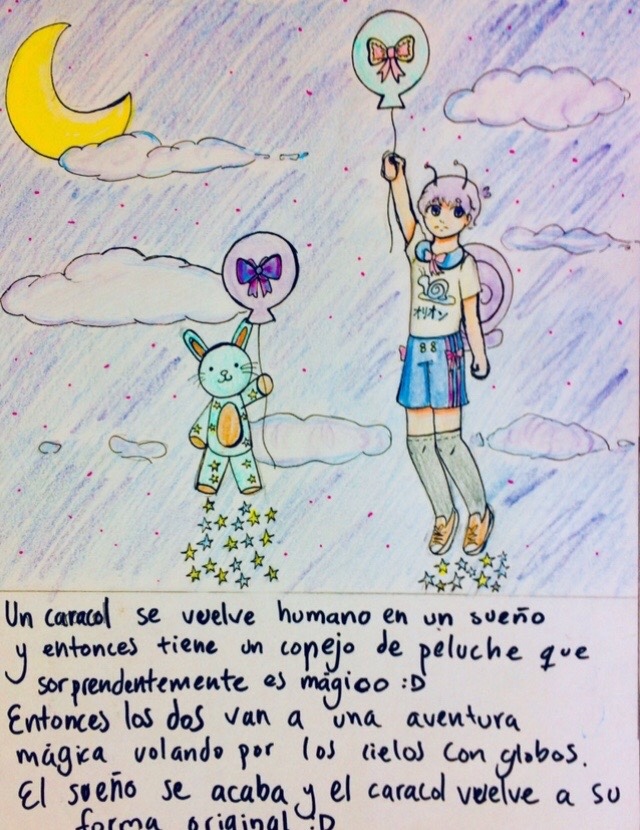 オリオン
88
Un caracol se vuelve humano en un sueño
y entonces tiene un conejo de peluche que
sorprendentemente es mágico :D
Entonces los dos van a una aventura
mágica volando por los cielos con globos.
El sueño se acaba y el caracol vuelve a su
forma original :D